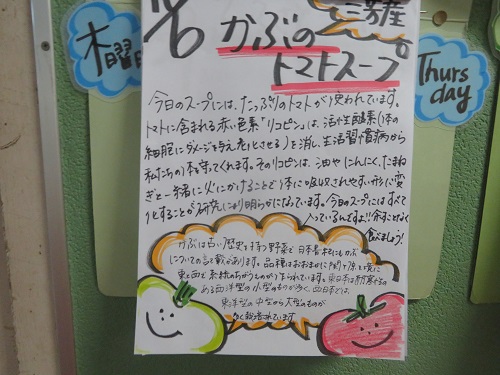 木曜日
Thurs
day
%
三芳産
かぶの
トマトスープ
今日のスープには、たっぷりのトマトが使われています。
トマトに含まれる赤い色素「リコピン」は、活性酸素(体の
細胞にダメージを与え老化させる)を消し、生活習慣病から
私たちの体を守ってくれます。そのリコピンは、油やにんにく、たまね
ぎと一緒に火にかけることで体に吸収されやすい形に変
化することが研究により明らかになっています。今日のスープにはすべて
入っているんですよ!!余すことなく
食べましょう!
かぶは古い歴史を持つ野菜で日本書紀にもかぶ
についての記載があります。品種はおおまかに関ヶ原を境に
東と西で系統のちがうものが作られています。東日本は耐寒性の
ある西洋型の小型のものが多く、西日本では、
東洋型の中型から大型のものが
多く栽培されています